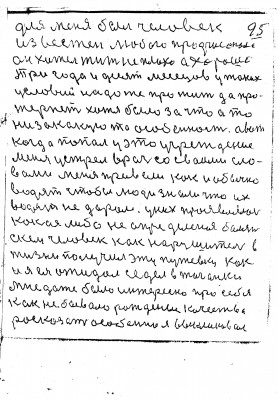 95
для меня был человек
известен любого
он хотел жить не плохо а хорошо
три года и десят месяцов у таких
условий надо же прожить да про
хотя было за что а то
низакакую то особенност. а вот
когда попал у это учреждение
меня встрел врач со своими сло-
вами меня привели как и обычно
водят чтобы люди знали что их
водят не даром. у них
какая либо не определения
ским человек как нарушител в
жизни получил эту путевку как
и я ожидал седел в
мне даже было интересно про себя
как не бывало рождении качества
росказат особенно я